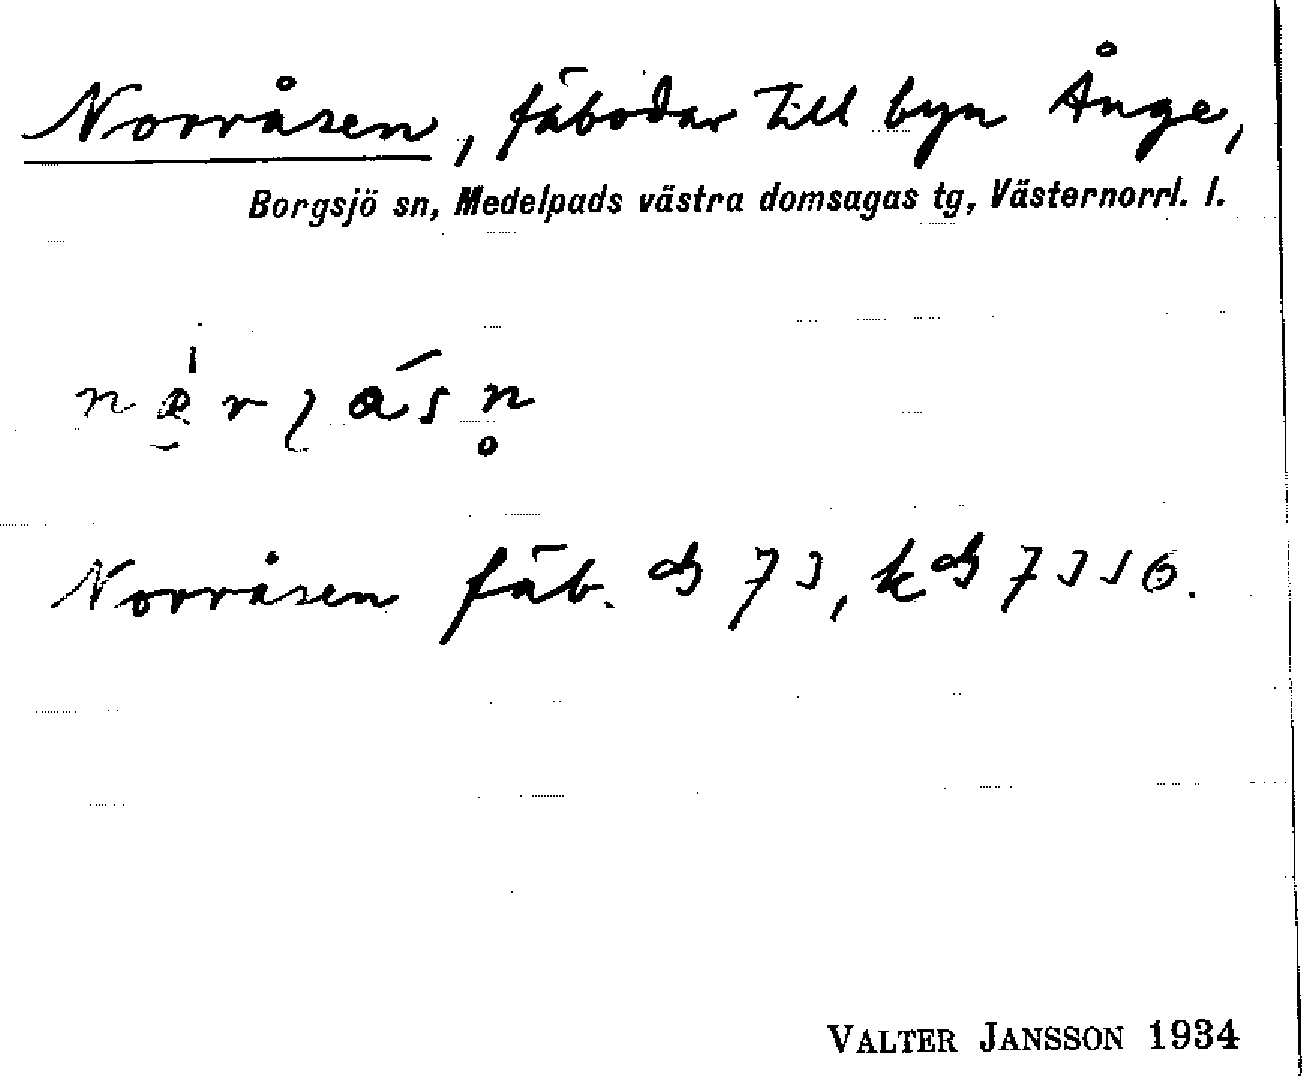 Norråsen, fäbodar till byn Ånge,
Borgsjö sn, Medelpads västra domsagas tg, Västernorrl. l.
Norråsen fäb.
VALTER JANSSON 1934